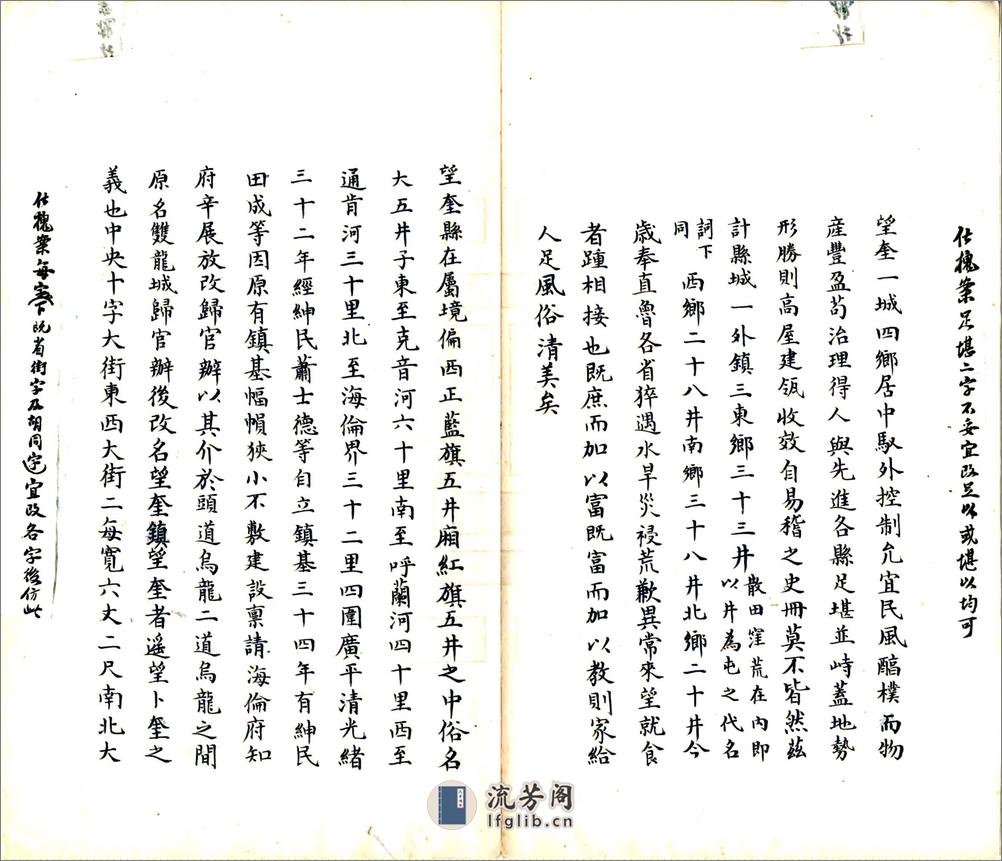 仕槐案足堪二字不妥宜改足以或堪以均可
望奎一城四鄉居中馭外控制允宜民風醕樸而物
產豐盈苟治理得人與先進各縣足堪並峙蓋地勢
形勝則高屋建瓴收效自易稽之史冊莫不皆然茲
計縣城一外鎮三東鄉三十三井散田窪荒在內即
以井為屯之代名
詞下
同
西鄉二十八井南鄉三十八井北鄉二十井今
歲奉直魯各省猝遇水旱災祲荒歉異常來望就食
者踵相接也既庶而加以富既富而加以教則家給
人足風俗清美矣
望奎縣在屬境偏西正藍旗五井廂紅旗五井之中俗名
大五井子東至克音河六十里南至呼蘭河四十里西至
通肯河三十里北至海倫界三十二里四圍廣平清光緒
三十二年經紳民蕭士德等自立鎮基三十四年有紳民
田成等因原有鎮基幅幀狹小不敷建設禀請海倫府知
府辛展放改歸官辦以其介於頭道烏龍二道烏龍之間
原名雙龍城歸官辦後改名望奎鎮望奎者遥望卜奎之
義也中央十字大街東西大街二每寬六丈二尺南北大
仕槐案每字下既省街字及胡同字宜改各字後仿此
流芳阁
lfglib.cn